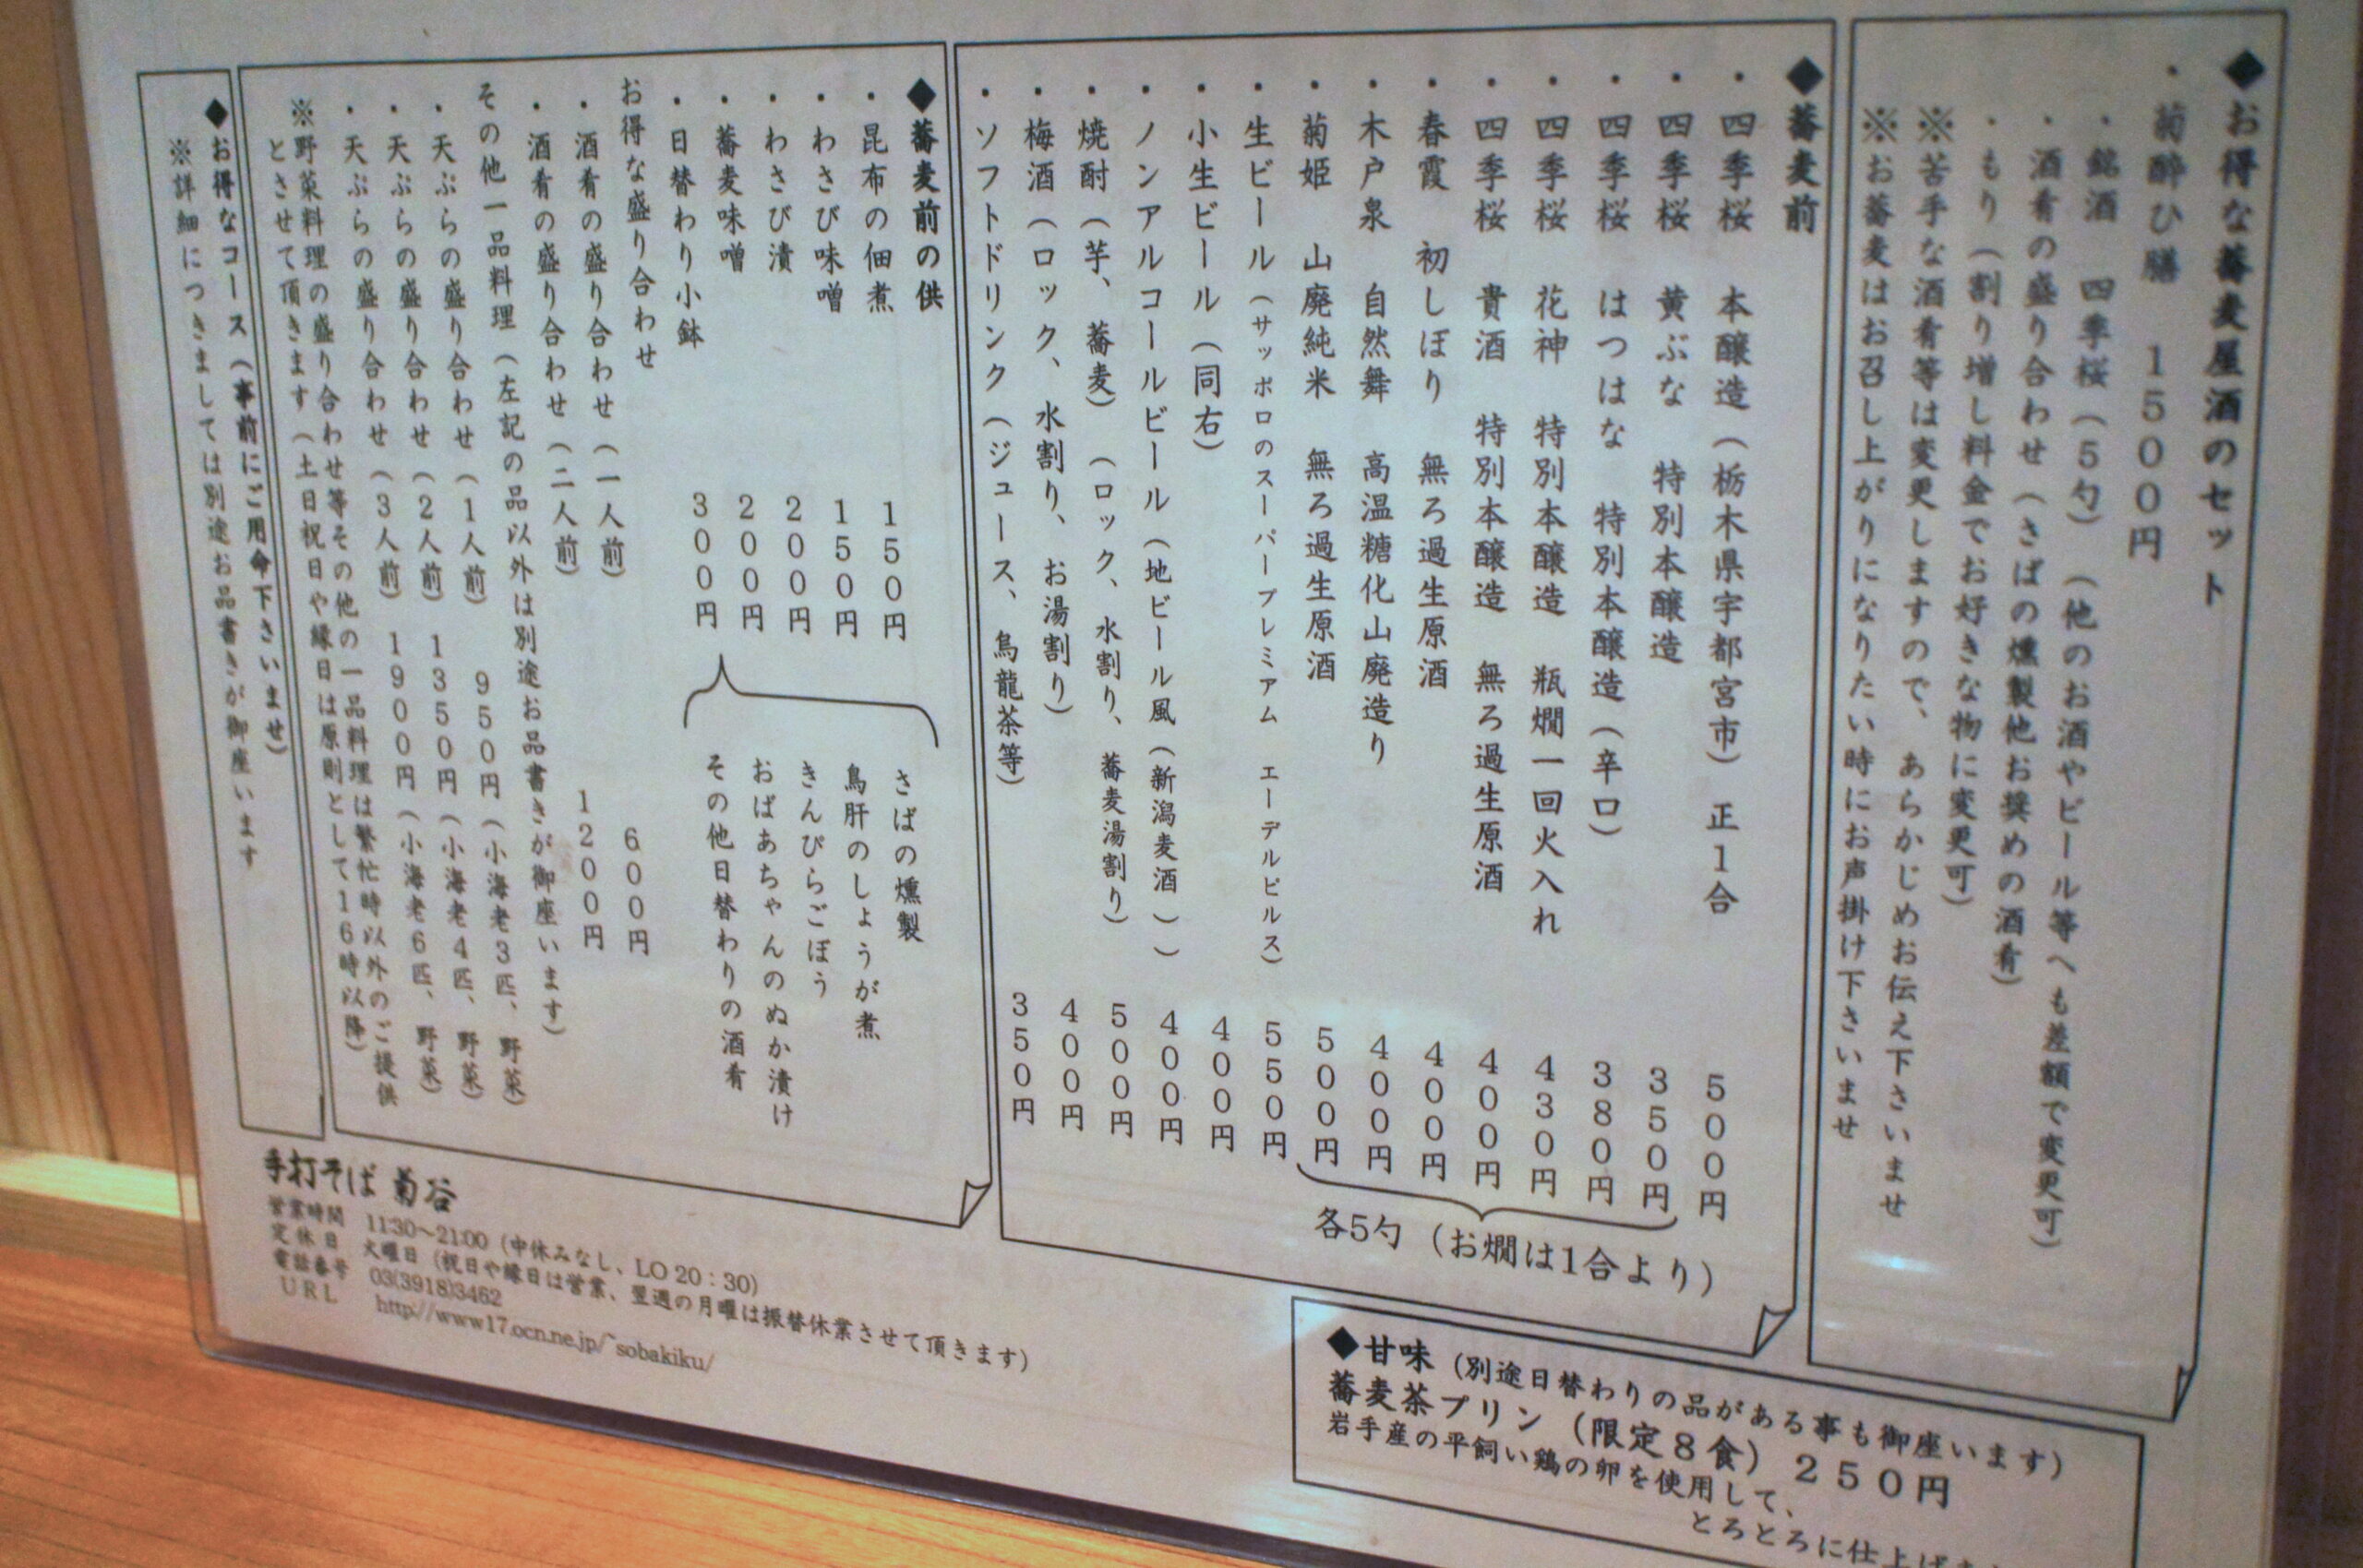 ◆お得な蕎麦屋酒のセット
・菊酔ひ膳 1500円
・銘酒 四季桜（5勺）（他のお酒やビール等へも差額で変更可）
・酒肴の盛り合わせ（さばの燻製他お奨めの酒肴）
・もり（割り増し料金でお好きな物に変更可）
※苦手な酒肴等は変更しますので、あらかじめお伝え下さいませ
※お蕎麦はお召し上がりになりたい時にお声掛け下さいませ
◆蕎麦前
・四季桜 本醸造（栃木県宇都宮市）正1合 500円
・四季桜 黄ぶな 特別本醸造 350円
・四季桜 はつはな 特別本醸造（辛口） 380円
・四季桜 花神 特別本醸造 瓶燗一回火入れ 430円
・四季桜 貴酒 特別本醸造 無ろ過生原酒 400円
・春霞 初しぼり 無ろ過生原酒 400円
・木戸泉 自然舞 高温糖化山廃造り 400円
・菊姫 山廃純米 無ろ過生原酒 500円
各5勺（お燗は1合より）
・生ビール（サッポロのスーパープレミアム エーデルピルス） 550円
・小生ビール（同右） 400円
・ノンアルコールビール（地ビール風（新潟麦酒）） 400円
・焼酎（芋、蕎麦）（ロック、水割り、蕎麦湯割り） 500円
・梅酒（ロック、水割り、お湯割り） 400円
・ソフトドリンク（ジュース、烏龍茶等） 350円
◆蕎麦前の供
・昆布の佃煮 150円
・わさび味噌 150円
・わさび漬 200円
・蕎麦味噌 200円
・日替わり小鉢 300円
さばの燻製
鳥肝のしょうが煮
きんぴらごぼう
おばあちゃんのぬか漬け
その他日替わりの酒肴
お得な盛り合わせ
・酒肴の盛り合わせ（一人前） 600円
・酒肴の盛り合わせ（二人前） 1200円
その他一品料理（左記の品以外は別途お品書きが御座います）
・天ぷらの盛り合わせ（1人前） 950円（小海老3匹、野菜）
・天ぷらの盛り合わせ（2人前） 1350円（小海老4匹、野菜）
・天ぷらの盛り合わせ（3人前） 1900円（小海老6匹、野菜）
※野菜料理の盛り合わせ等その他の一品料理は繁忙時以外のご提供
とさせて頂きます（土日祝日や縁日は原則として16時以降）
◆お得なコース（事前にご用命下さいませ）
※詳細につきましては別途お品書きが御座います
手打そば 菊谷
営業時間 11:30～21:00（中休みなし、LO 20：30）
定休日 火曜日（祝日や縁日は営業、翌週の月曜は振替休業させて頂きます）
電話番号 03(3918)3462
URL http://www17.ocn.ne.jp/~sobakiku/
◆甘味（別途日替わりの品がある事も御座います）
蕎麦茶プリン（限定8食）250円
岩手産の平飼い鶏の卵を使用して、
とろとろに仕上げ